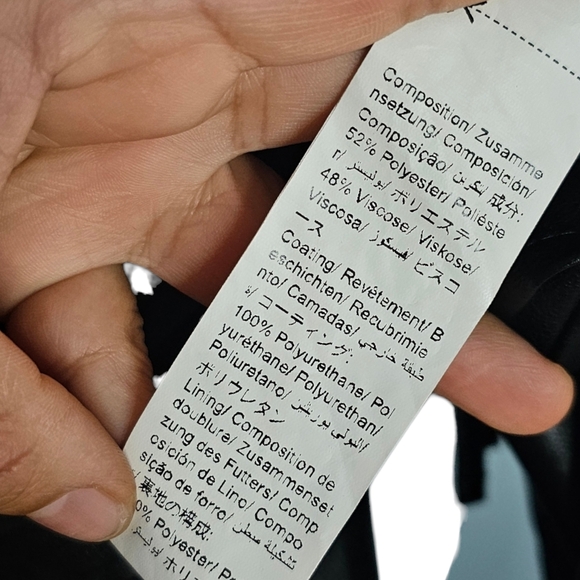 Composition/ Zusamme
nsetzung/ Composición/
Composição/ تكوين/ 成分:
52% Polyester/ Poliéste
r/ بوليستر/ ポリエステル
48% Viscose/ Viskose/
Viscosa/ فيسكوز/ ビスコ
ース
Coating/ Revêtement/ B
eschichten/ Recubrimie
nto/ Camadas/ طبقة خارجي
ة/ コーティング:
100% Polyurethane/ Pol
yuréthane/ Polyurethan/
Poliuretano/ البولي يوريثين/
ポリウレタン
Lining/ Composition de
doublure/ Zusammenset
zung des Futters/ Comp
osición de Lino/ Compo
sição de forro/ تشكيلة مبطن
/ 裏地の構成:
0% Polyester/ Po
بوليستر/ ポリエス